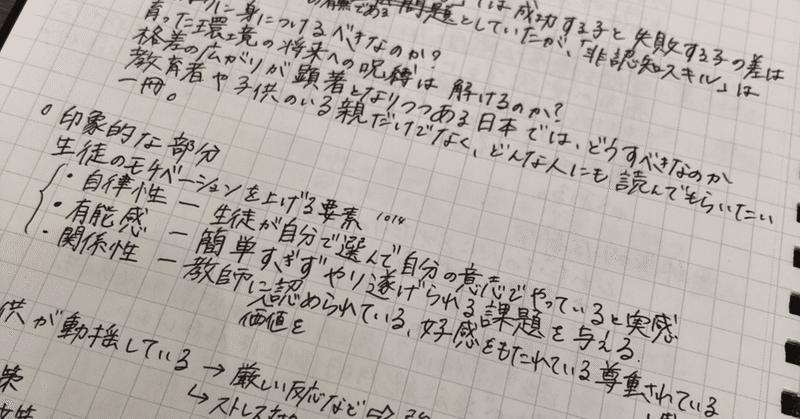 は成功する子と失敗する子の差は
の有無である 問題としていたが、「非認知スキル」は
に身につけるべきなのか？
育った環境の将来への呪縛は解けるのか？
格差の広がりが顕著となりつつある日本では、どうすべきなのか
教育者や子供のいる親だけでなく、どんな人にも読んでもらいたい
一冊。
○印象的な部分
生徒のモチベーションを上げる要素 1014
・自律性 － 生徒が自分で選んで自分の意志でやっていると実感
・有能感 － 簡単すぎずやり遂げられる課題を与える
・関係性 － 教師に認められている、好感をもたれている 尊重されている
価値を
供が動揺している → 厳しい反応など⇒
↳ ストレス
策